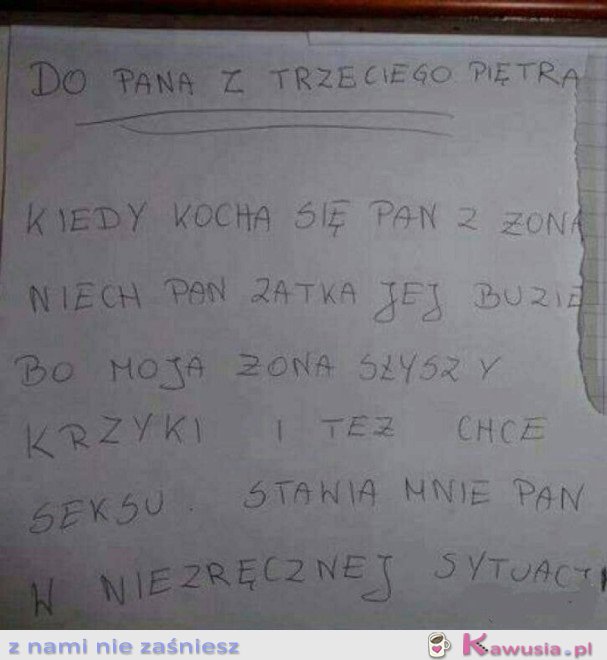 DO PANA Z TRZECIEGO PIĘTRA
KIEDY KOCHA SIĘ PAN Z ZONA
NIECH PAN ZATKA JEJ BUZIE
BO MOJA ZONA SŁYSZY
KRZYKI I TEZ CHCE
SEKSU. STAWIA MNIE PAN
W NIEZRĘCZNEJ SYTUACJI
z nami nie zaśniesz
Kawusia.pl